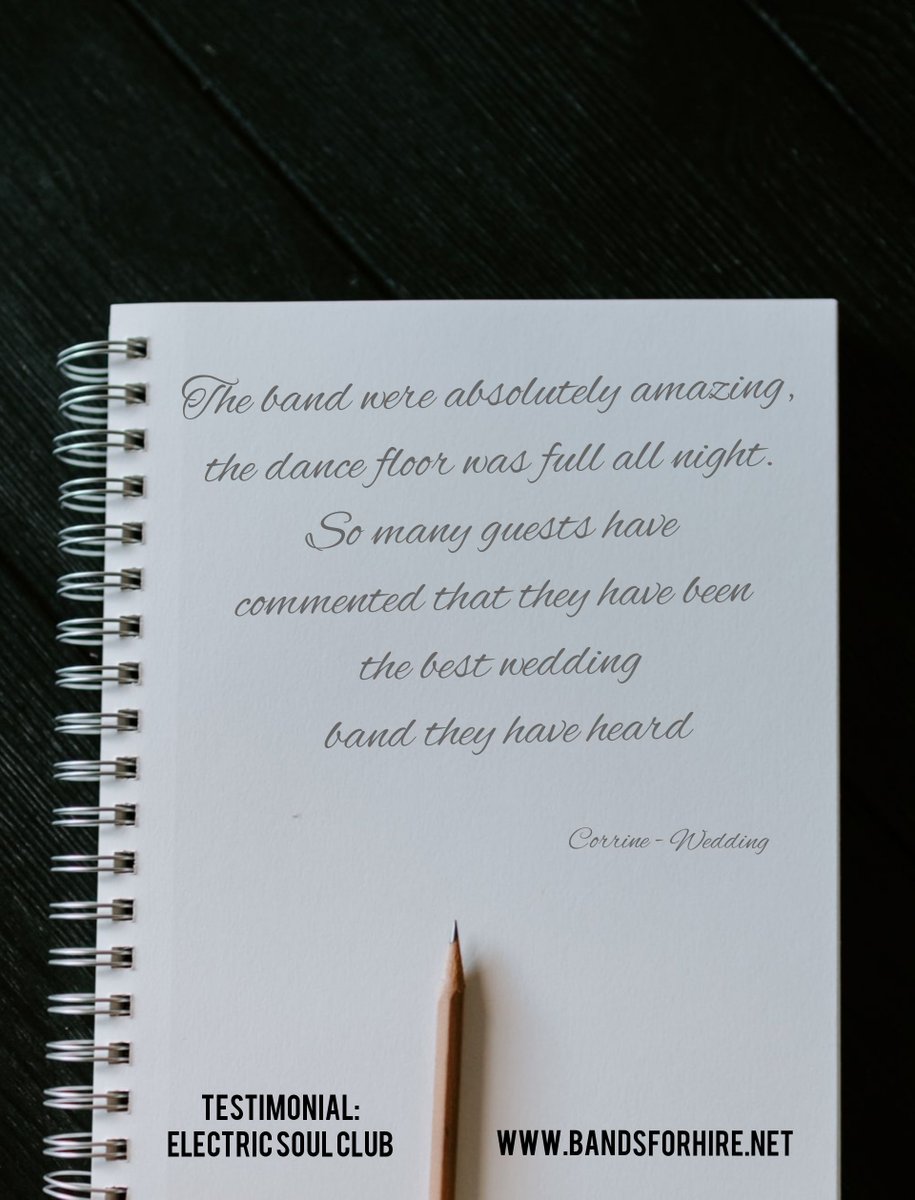 The band were absolutely amazing,
the dance floor was full all night.
So many guests have
commented that they have been
the best wedding
band they have heard
Corrine - Wedding
TESTIMONIAL:
ELECTRIC SOUL CLUB
WWW.BANDSFORHIRE.NET